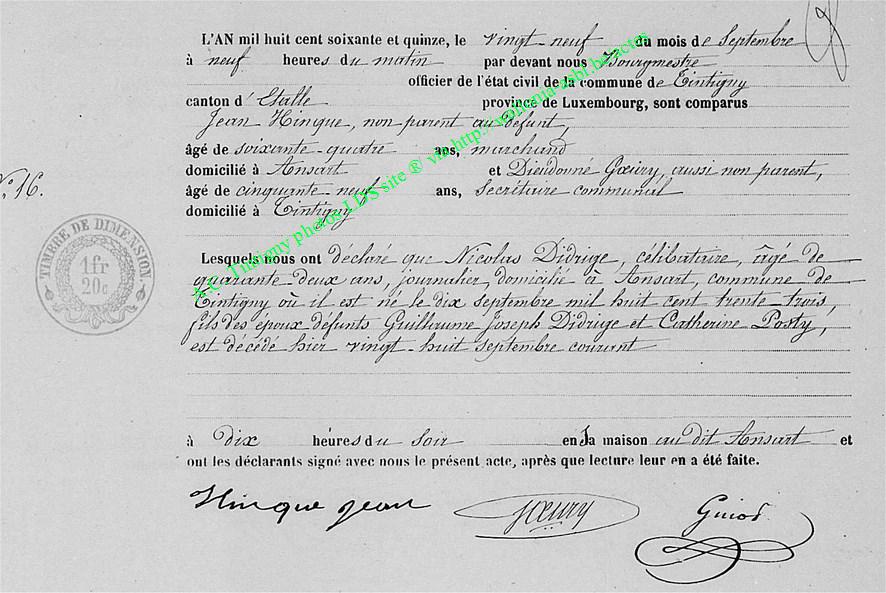 L'AN mil huit cent soixante et quinze, le vingt-neuf du mois de Septembre
à neuf heures du matin par devant nous Bourgmestre
officier de l'état civil de la commune de Tintigny
canton d'Etalle province de Luxembourg, sont comparus
Jean Hinque, non parent au défunt,
âgé de soixante-quatre ans, marchand
domicilié à Ansart et Dieudonné Goeury, aussi non parent,
âgé de cinquante-neuf ans, Secrétaire communal
domicilié à Tintigny
N° 16.
TIMBRE DE DIMENSION
1 fr
20 c
Lesquels nous ont déclaré que Nicolas Didrige, célibataire, âgé de
quarante-deux ans, journalier, domicilié à Ansart, commune de
Tintigny où il est né le dix septembre mil huit cent trente-trois
fils des époux défunts Guillaume Joseph Didrige et Catherine Posty,
est décédé hier vingt-huit septembre courant
à dix heures du soir en sa maison au dit Ansart et
ont les déclarants signé avec nous le présent acte, après que lecture leur en a été faite.
Hinque jean Goeury Guiot
A.C. Tintigny photos LDS site ® via http://